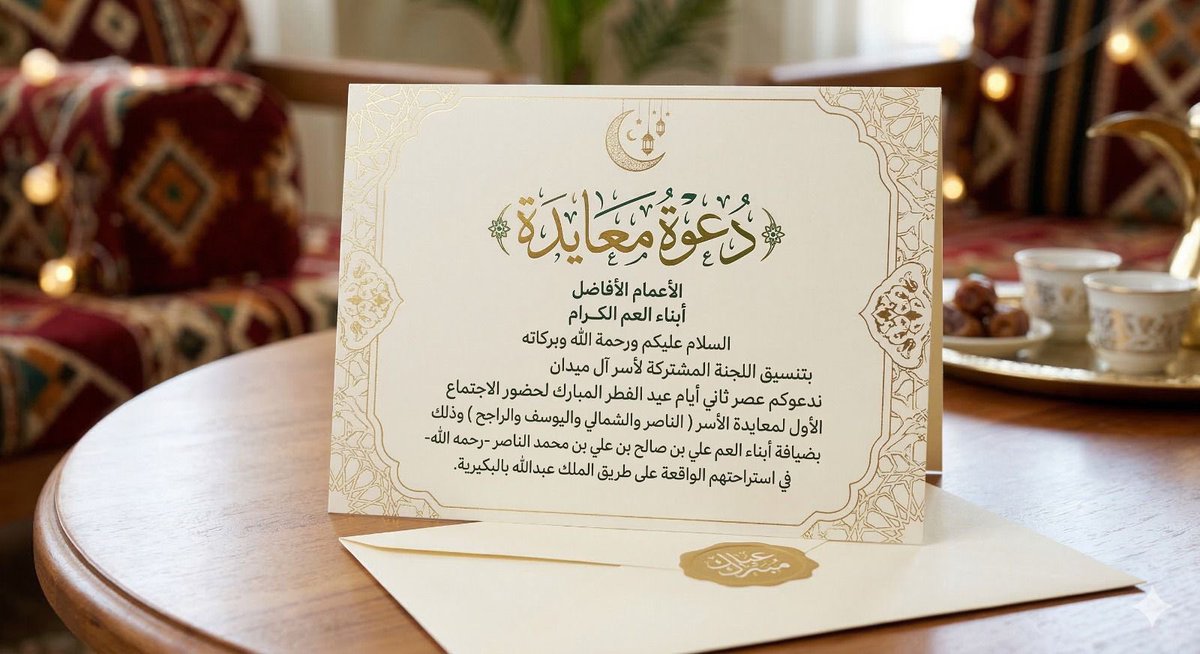 دعوة معايدة
الأعمام الأفاضل
أبناء العم الكرام
السلام عليكم ورحمة الله وبركاته
بتنسيق اللجنة المشتركة لأسر آل ميدان
ندعوكم عصر ثاني أيام عيد الفطر المبارك لحضور الاجتماع
الأول لمعايدة الأسر ( الناصر والشمالي واليوسف والراجح ) وذلك
بضيافة أبناء العم علي بن صالح بن علي بن محمد الناصر -رحمه الله-
في استراحتهم الواقعة على طريق الملك عبدالله بالبكيرية.